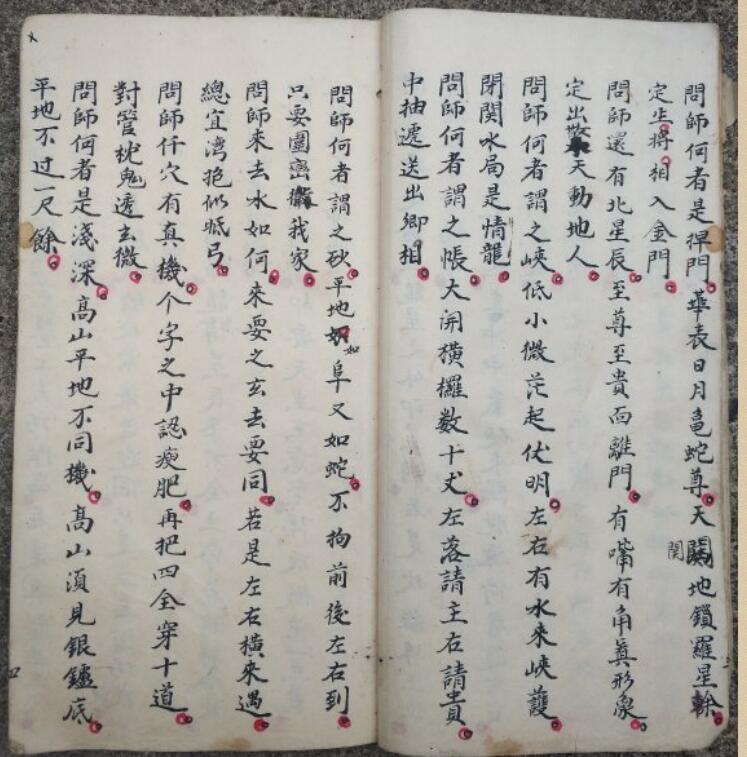 問師何者是捍門華表日月龜蛇尊天關地鎖羅星餘
関
定生將相入金門
問師還有北星辰至尊至貴而離門有嘴有角真形像
定出驚天動地人
問師何者謂之峽低小微茫起伏明左右有水來峽護
閉関水局是情龍
問師何者謂之帳大開橫羅数十丈左落請主右請貴
中抽遞送出卿相
問師何者謂之砂平地如阜又如蛇不拘前後左右到
如
只要團巒我家
問師來去水如何來要之玄去要同若是左右橫來遇
總宜湾抱似彎弓
問師仟穴有真機个字之中認瘦肥再把四全穿十道
對管枕鬼透玄微
問師何者是淺深高山平地不同機高山須見銀鑪底
平地不过一尺餘